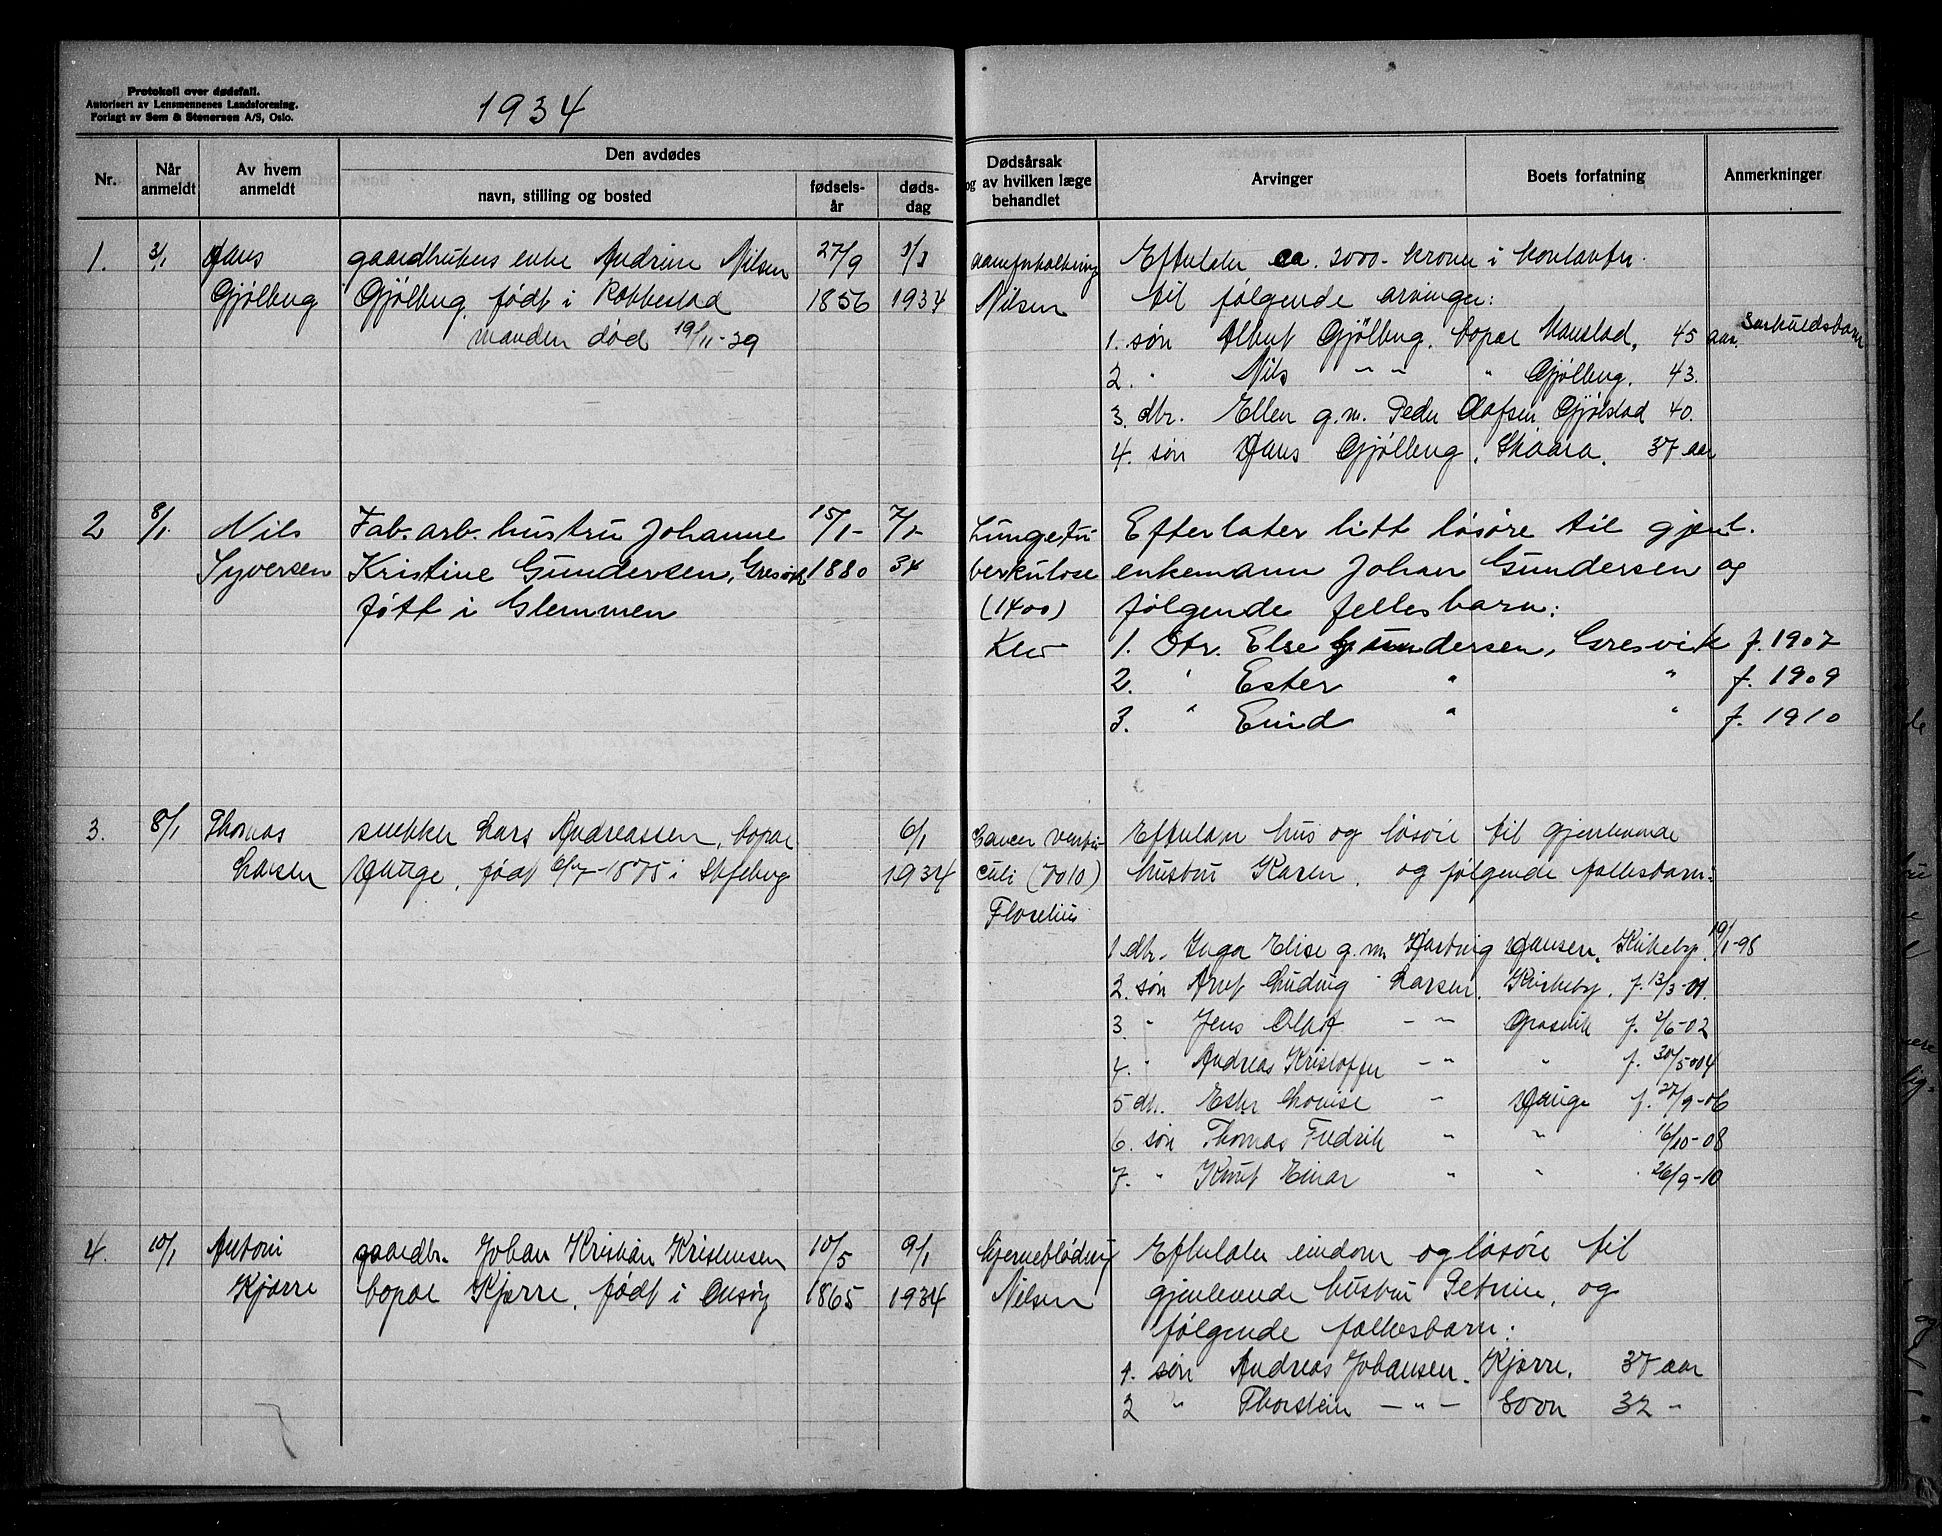 Protokoll over dødsfall.
Autorisert av Lensmennenes Landsforening.
Forlagt av Sem & Stenersen A/S, Oslo.
1934
Nr.
Når anmeldt
Av hvem anmeldt
Den avdødes
navn, stilling og bosted
fødsels-år
døds-dag
Dødsårsak og av hvilken læge behandlet
Arvinger
Boets forfatning
Anmerkninger
1. 3/1 Hans Gjølberg
gaardbrukers enke Andrine Nilsen
Gjølberg, født i Robbestad
manden død 19/11-29
27/9 1856
1934
aareforkalkning
Nilsen
Efterlater ca. 2000.- kroner i kontanter
til følgende arvinger:
1. søn Albert Gjølberg, bopæl 45 aar. Særkuldsbarn
2. " Nils " " " Gjølberg. 43.
3. dtr. Ellen g.m. Peder Olafsen Gjølstad 40.
4. søn Hans Gjølberg, Skaara. 37 aar
2 8/1. Nils Syversen
Fab. arb. hustru Johanne
Kristine Gundersen, Gresvik
født i Glemmen
15/1- 1880
7/1- 34
Lungetu
berkulose
(1400)
Efterlater litt løsøre til gjenl.
enkemann Johan Gundersen og
følgende fellesbarn:
1. Dtr. Else Gundersen, Gresvik f. 1907
2. " Ester " " f. 1909
3. " " " f. 1910
3. 8/1 Thomas Larsen
snekker Lars Andreassen, bopæl
Hauge, født 1875 i Skjeberg
6/1 1934
Cancer ventri-
culi (7010)
Efterlater hus og løsøre til gjenlevende
hustru Karen, og følgende fællesbarn:
1 dtr. Inga Elise g.m. Hartvig Hansen, Kirkeby. 19/1-98
2. søn Arnt Ludvig Larsen, Kirkeby, f. 13/3-01.
3 " Jens Olaf - " - Græsvik f. 2/6-02
4. " Andreas Kristoffer - " - " f. 30/5-04
5 dt. Ester Lovise " Hauge f. 27/9-06
6. søn Thomas Fredrik " " 16/10-08
7. " Knut Einar " " 26/9-10
4. 10/1 Antoni Kjærre
gaardbr. Johan Kristian Kristensen
bopæl Kjærre, født i Onsøy
10/5 1865
9/1 1934
Hjerneblødning
Nilsen
Efterlater eiendom og løsøre til
gjenlevende hustru Petrine, og
følgende fællesbarn:
1. søn Andreas Johansen. Kjærre. 37 aar
2 " Thorstein - " - 32 "